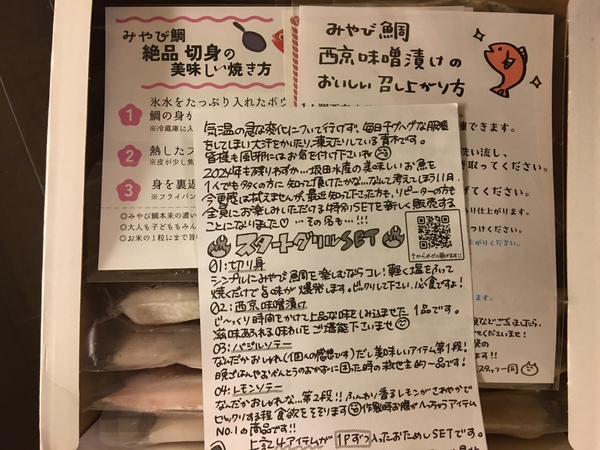 みやび鯛
絶品 切身の
美味しい焼き方
1
氷水をたっぷり入れたボウ
鯛の身が
※冷蔵庫に入
2
熱したフ
※皮が少し焦
3
身を裏返
※フライパン
◎みやび鯛本来の濃い
◎大人も子どももみん
◎お米の1粒にまで旨
みやび鯛
西京味噌漬けの
おいしい召し上がり方
できます。
洗い流し、
取ってください。
てください。
仕上がります。
つけください。
上がりください。
ございましたら、
くださいませ!
の
ます!!
スタッフ一同
気温の急な変化について行けず、毎日チグハグな服装
をしてしまい大汗をかいたり、凍えたりしている青木です。
皆様も風邪にはお気を付け下さいね
2024年も残りわずか…坂田水産の美味しいお魚を
1人でも多くの方に知って頂けたかな…なんて考えてしまう11月。
今更感は拭えませんが、最近知って下さった方も、リピーターの方も
全員にお楽しみいただける特別SETを新しく販売する
ことになりました♡ …その名も…!!!
スタートグリルSET
↑からかせに飛びます!!
01:切り身
シンプルにみやび鯛を楽しむならコレ!軽く塩をふって
焼くだけで旨味が爆発します。ビックリして下さい。必食ですよ!
02:西京味噌漬け
じ〜っくり時間をかけて上品な味をしみ込ませた 1品です。
滋味あふれる味わいをご堪能下さいませ
03:バジルソテー
なんだかおしゃれ(個人の感想です)だし美味しいアイテム第1段!
晩ごはんやおべんとうのおかずに困った時の救世主的一品です!
04:レモンソテー
なんだかおしゃれな…第2段!!ふんわり香るレモンがさわやかで
ビックリする程 食欲をそそります 作製時お腹がへっちゃうアイテム
NO.1の商品です!!
上記4アイテムが 1Pずつ 入ったおためしSETです。